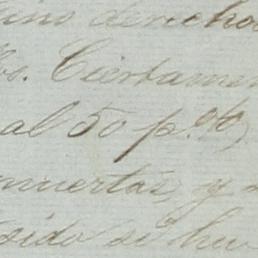 derecho
Ciertamen
al 50 p.%
muertas, y
sido si hu